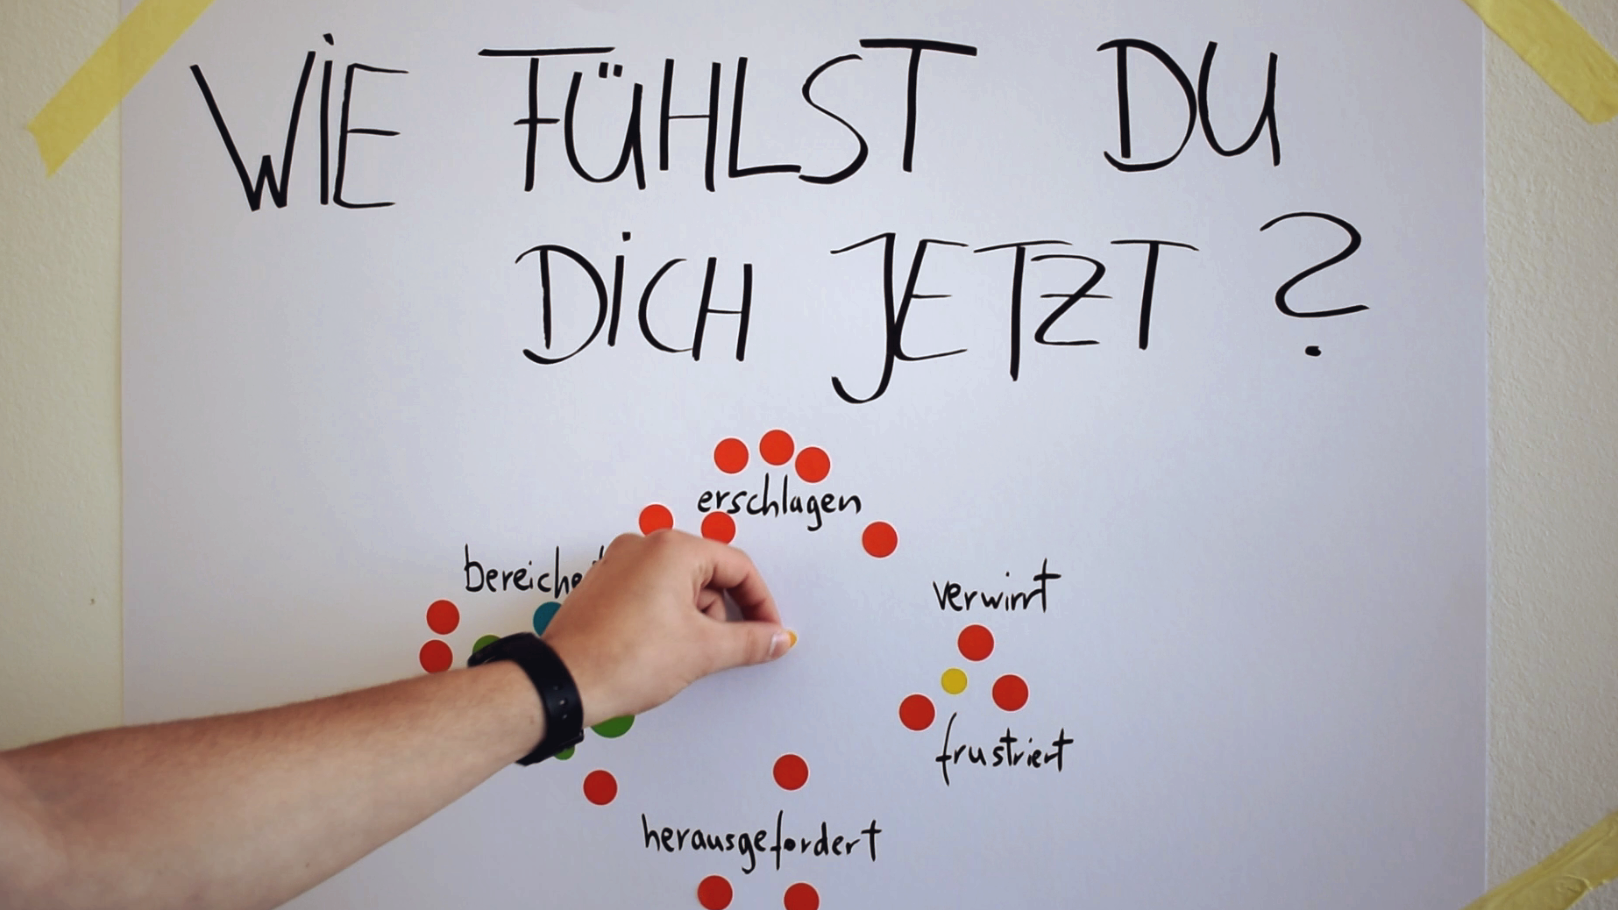 WIE FÜHLST DU
DICH JETZT?
erschlagen
verwirrt
frustriert
herausgefordert